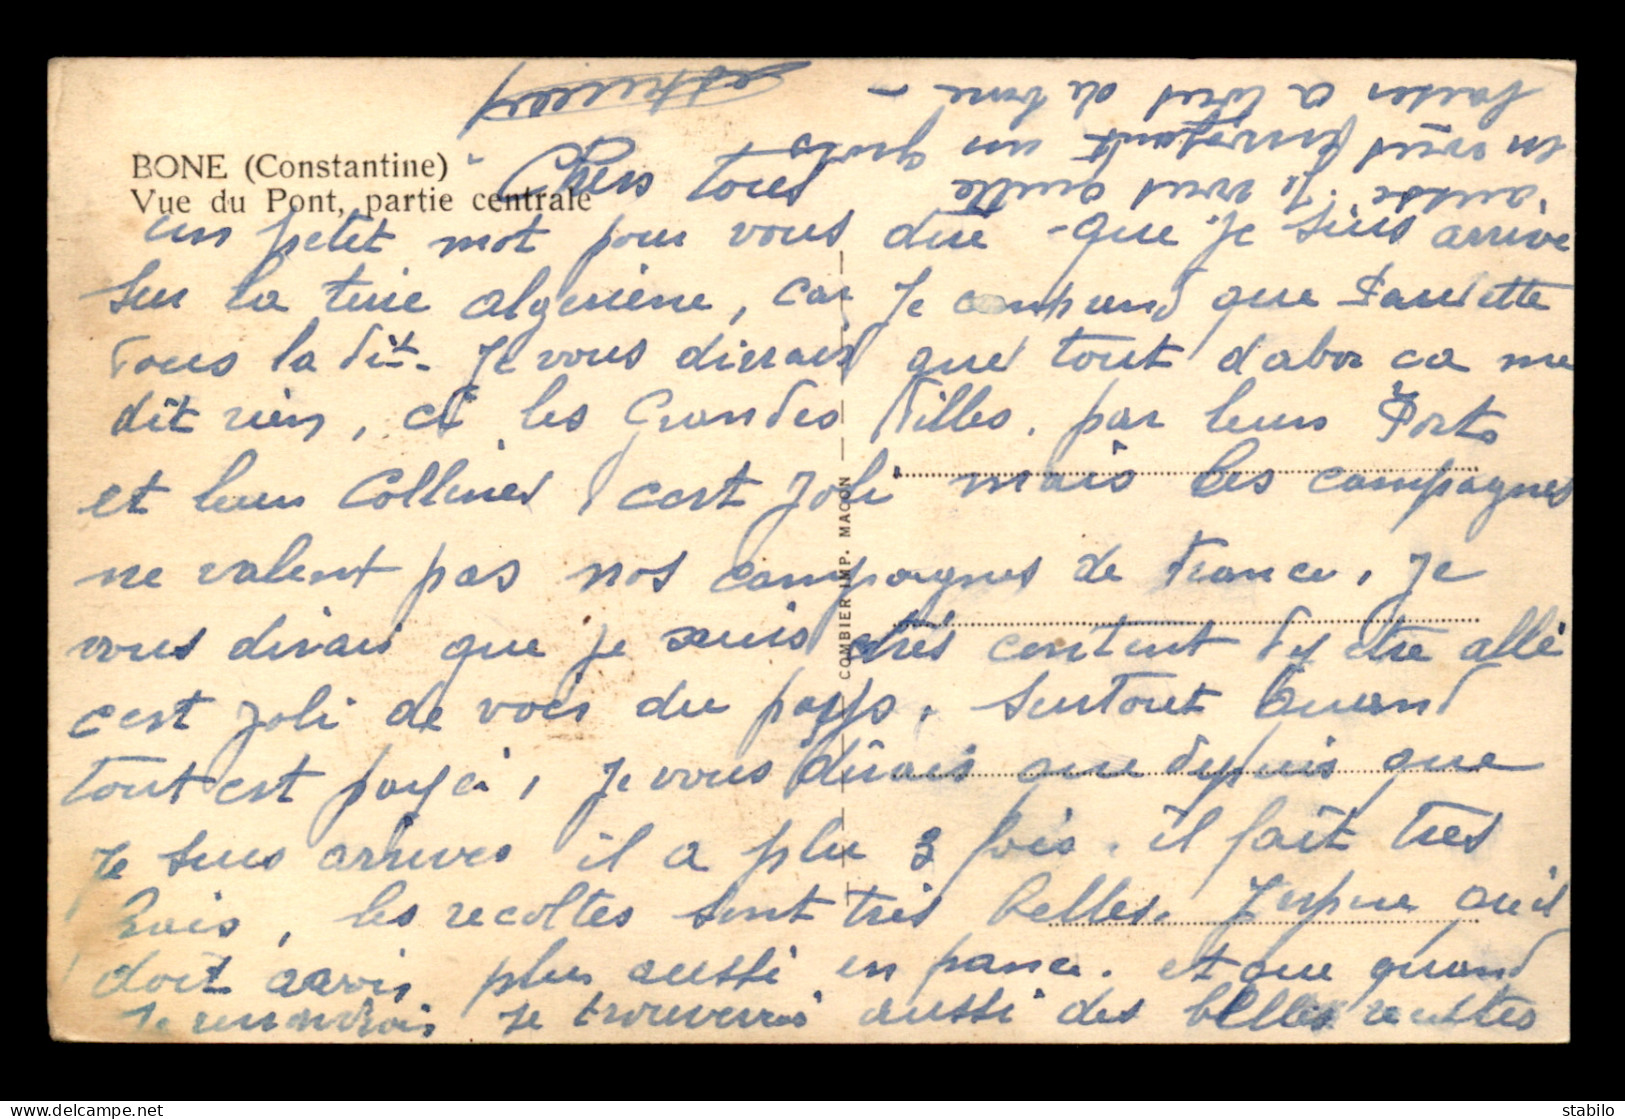 BONE (Constantine)
Vue du Pont, partie centrale
Chers tous
un petit mot pour vous dire que Je suis arrive
sur la terre algeriene, car Je comprend que Paulette
vous la dit. Je vous dirais que tout dabor ca me
dit rien, et les Grandes Villes. par leurs Ports
et leurs Collines, cest Joli mais les campagnes
ne valent pas nos campagnes de France, Je
vous dirais que je suis très content dy etre allé
cest Joli de voir du pays, surtout Quand
tout est payé, Je vous dirais que depuis que
Je suis arrives il a plu 3 fois. il fait tres
bois, les recoltes sont très belles. J'espere qu'il
doit avoir plus aussi en france. et que quand
Je reviendrais Je trouverais aussi des belles recoltes
aussi. Je vous quitte
en vous embrassant un gros
baiser a vous de bone -
COMBIER IMP. MACON
stabilo